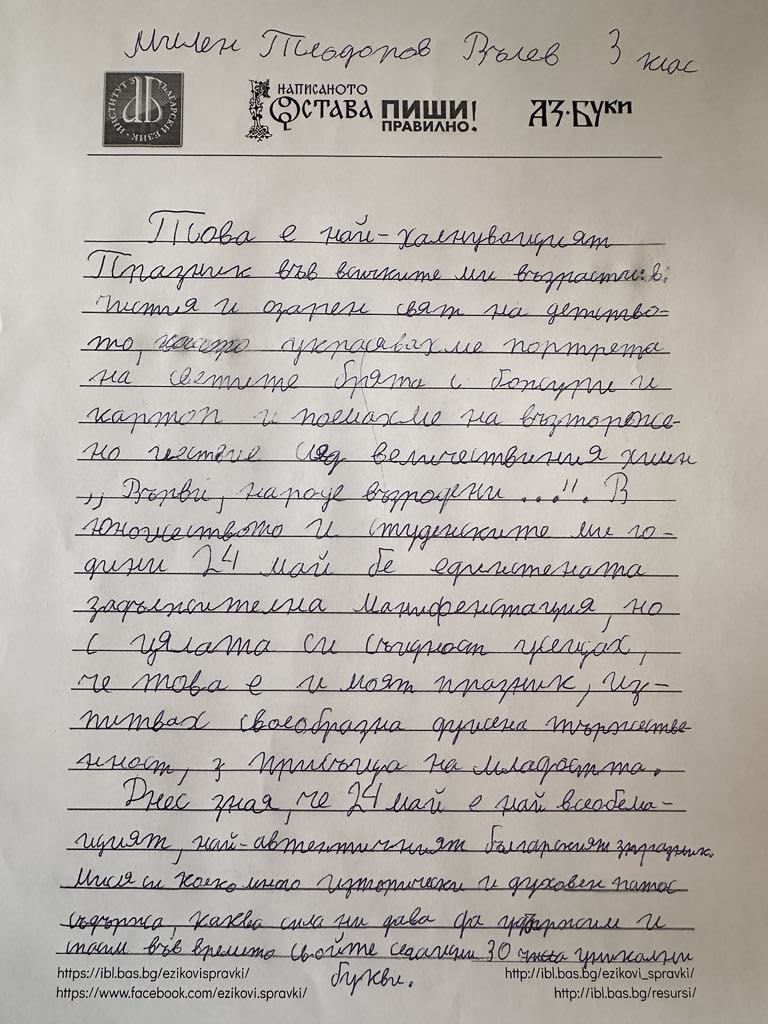 Милен Теодоров Вълев 3 клас
ИНСТИТУТ ЗА БЪЛГАРСКИ ЕЗИК
НАПИСАНОТО ОСТАВА ПИШИ ПРАВИЛНО! АЗ·БУКИ
Това е най-
Празник във всичките ми възрасти: в
чистия и озарен свят на детство-
то, когато украсявахме портрета
на светите братя с божури и
картоп и поемахме на възторже-
но шествие след величествения химн
„Върви, народе възродени ...". В
юношеството и студенските ми го-
дини 24 май бе единствената
задължителна манифенстация, но
с цялата си същност усещах,
че това е и моят празник, из-
питвах своеобразна душена тържестве
нност, присъща на младостта.
Днес зная, че 24 май е най всеобема-
щият, най-автентичният българският празник.
Мисля си колко много изторически и духовен патос
съдържа, каква сила ни дава да удържим и
пасим във времето свойте седащни 30 уникални
букви.
https://ibl.bas.bg/ezikovispravki/ http://ibl.bas.bg/ezikovi_spravki/
https://www.facebook.com/ezikovi.spravki/ http://ibl.bas.bg/resursi/